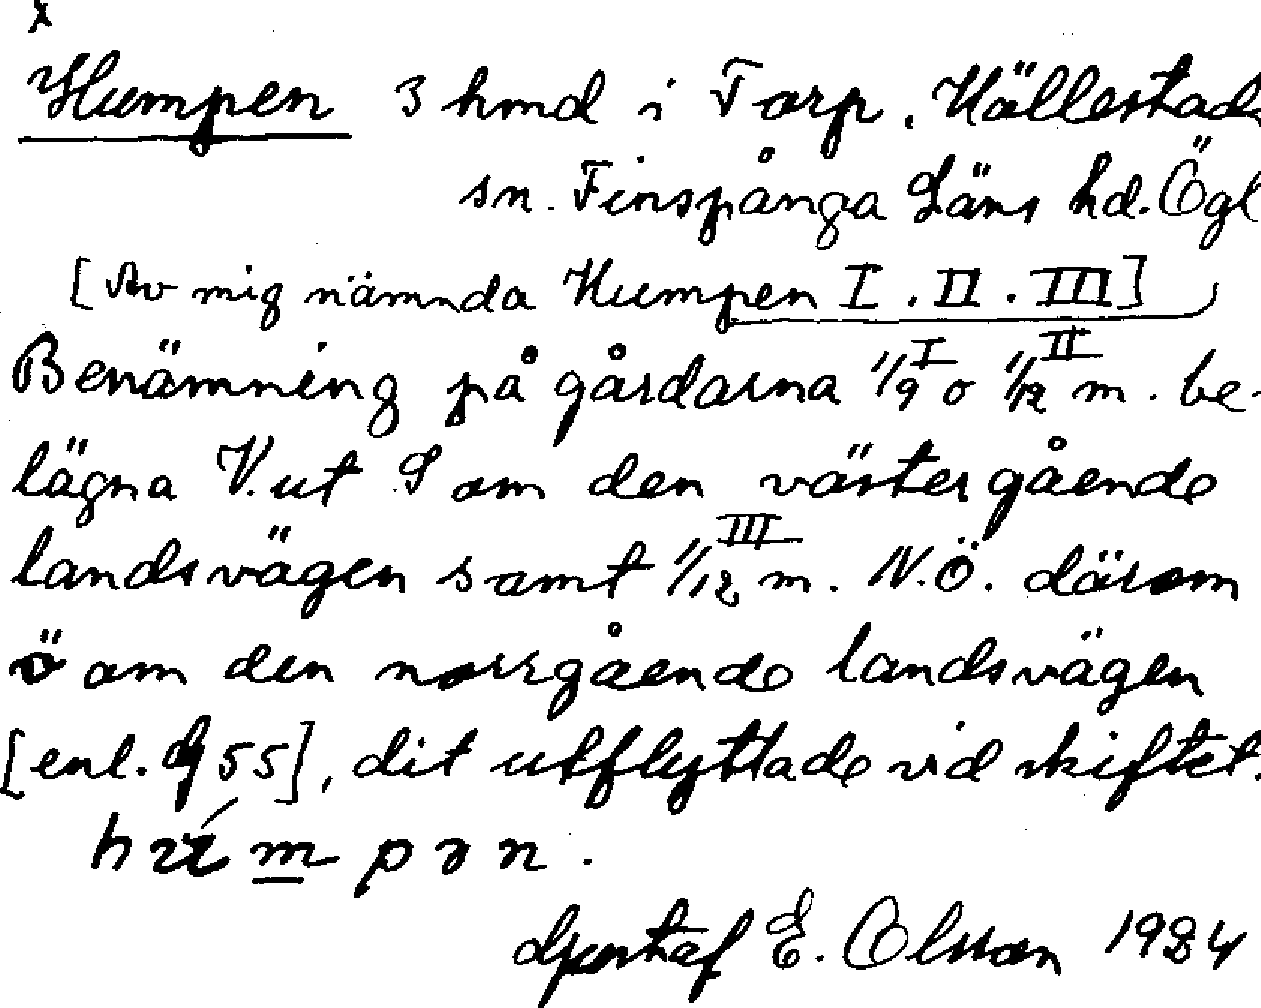 x
Humpen 3 hmd i Torp. Hällestads
sn. Finspånga Läns hd. Ögl
[Av mig nämnda Humpen I. II. III]
Benämning på gårdarna 1/9 I o 1/12 II m. be-
lägna V. ut S om den västergående
landsvägen samt 1/12 III m. N.Ö. därom
ö om den norrgående landsvägen
[enl. G 55], dit utflyttade vid skiftet.
Gustaf E. Olsson 1924